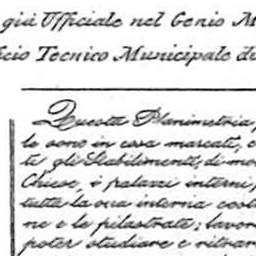 già Uffiziale nel Genio M
cio Tecnico Municipale di
Questa Planimetria,
le sono in essa marcati, e
ti gli Stabilimenti, di mo
Chiese, i palazzi interni,
tutta la vera interna cost
ne e le pilastrate; lavor
poter studiare e ritrar